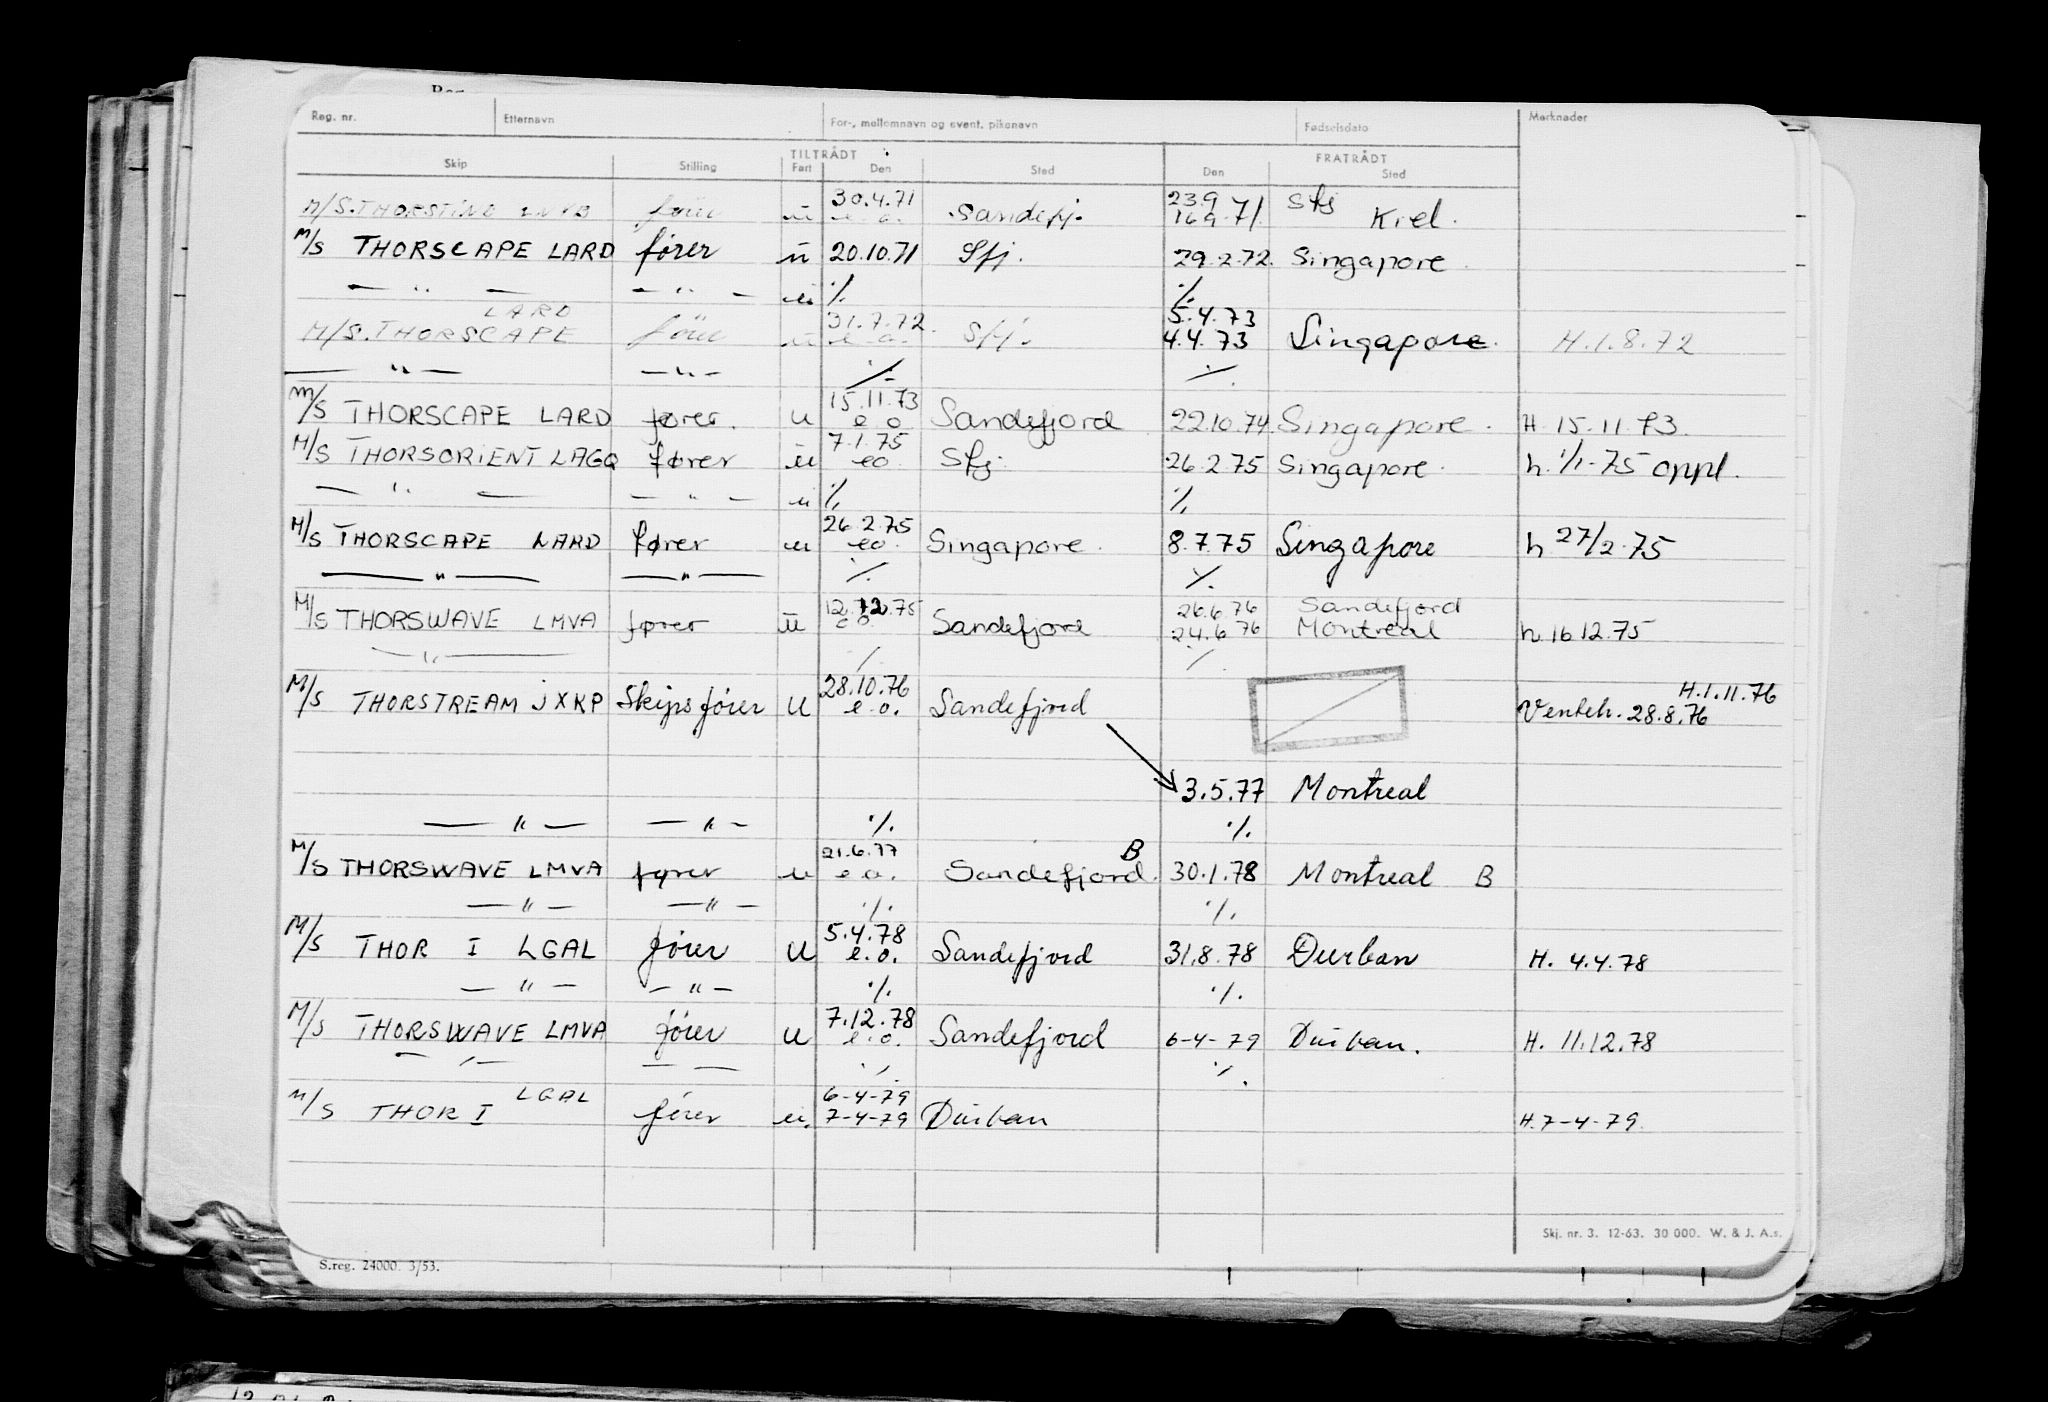 Reg. nr. Etternavn For-, mellomnavn og event. pikenavn Fødselsdato Merknader
TILTRÅDT FRATRÅDT
Skip Stilling Fart Den Sted Den Sted
30.4.71 23.9 Sfj
M/S. THORSTIND LNVB fører u e.o. Sandefj. 16.9.71. Kiel.
M/S THORSCAPE LARD fører u 20.10.71 Sfj. 29.2.72. Singapore
— " — — " — u ./. ./.
LARD 31.7.72 5.4.73
M/S. THORSCAPE fører u e.o. Sfj. 4.4.73 Singapore. H.1.8.72
— " — — " — ./. ./.
15.11.73
M/S THORSCAPE LARD fører. u e o Sandefjord 22.10.74. Singapore. H. 15.11.73.
7.1.75
M/S THORSORIENT LAGQ fører u eo Sfj. 26.2.75 Singapore. h. 1/1-75 oppl.
— " — — " — u ./. ./.
26.2.75
M/S THORSCAPE LARD fører u eo Singapore. 8.7.75 Singapore h 27/2.75
— " — — " — ./. ./.
12.12.75 26.6.76 Sandefjord
M/S THORSWAVE LMVA fører u e o Sandefjord 24.6.76 Montreal h.16.12.75
— " — ./. ./.
28.10.76 H.1.11.76
M/S THORSTREAM JXKP Skipsfører u e.o. Sandefjord Venteh. 28.8.76
3.5.77 Montreal
— " — — " — ./. ./.
21.6.77 B
M/S THORSWAVE LMVA fører u e.o. Sandefjord. 30.1.78 Montreal B
— " — — " — ./. ./.
5.4.78
M/S THOR I LGAL fører u e.o. Sandefjord 31.8.78 Durban H. 4.4.78
— " — — " — ./. ./.
7.12.78
M/S THORSWAVE LMVA fører u e.o. Sandefjord 6-4-79 Durban. H. 11.12.78
— " — — — ./. ./.
LGAL 6-4-79
M/S THOR I fører u. 7-4-79 Durban H.7-4-79.
Skj. nr. 3. 12-63. 30 000. W. & J. A.s.
S.reg. 24000. 3/53.